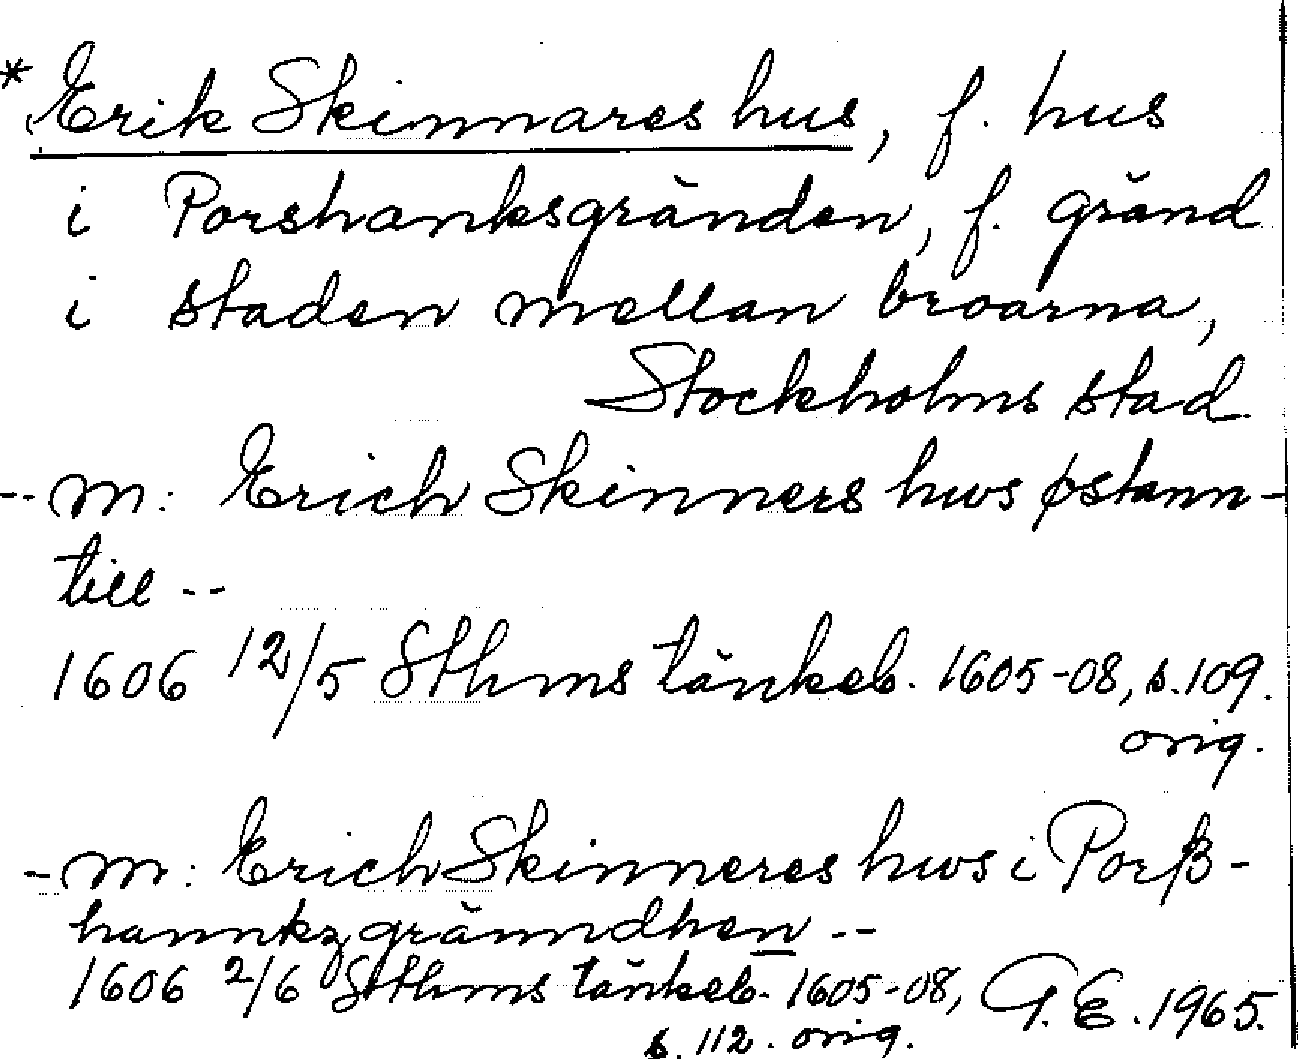 *Erik Skinnares hus, f. hus
i Porshanksgränden, f. gränd
i staden mellan broarna,
Stockholms stad
-- m: Erich Skinners hws østann-
till --
1606 12/5 Sthms tänkeb. 1605-08, s.109.
orig.
- m: Erich Skinneres hws i Porß-
hannkz gränndhen --
1606 2/6 Sthms tänkeb. 1605-08, G.E. 1965.
s. 112. orig.